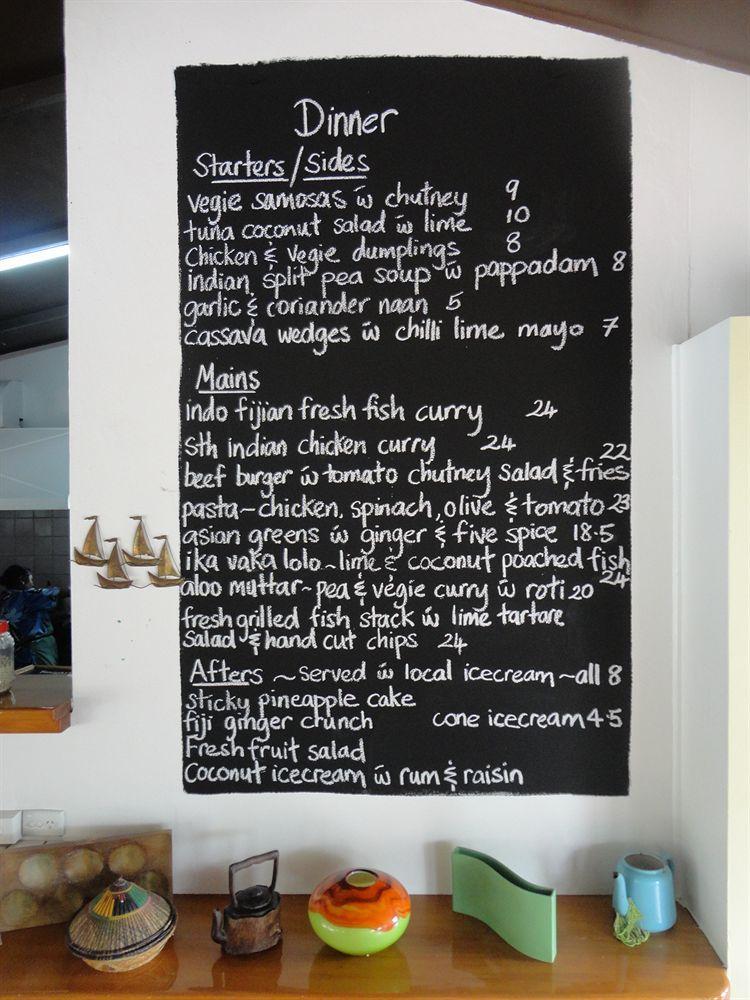 Dinner
Starters/Sides
vegie samosas w chutney 9
tuna coconut salad w lime 10
Chicken & vegie dumplings 8
indian split pea soup w pappadam 8
garlic & coriander naan 5
cassava wedges w chilli lime mayo 7
Mains
indo fijian fresh fish curry 24
Sth indian chicken curry 24
beef burger w tomato chutney salad & fries 22
pasta~chicken, spinach, olive & tomato 23
asian greens w ginger & five spice 18.5
ika vaka lolo~lime & coconut poached fish 24
aloo muttar~pea & vegie curry w roti 20
fresh grilled fish stack w lime tartare
Salad & hand cut chips 24
Afters ~served w local icecream~all 8
sticky pineapple cake
fiji ginger crunch cone icecream 4.5
Fresh fruit salad
Coconut icecream w rum & raisin